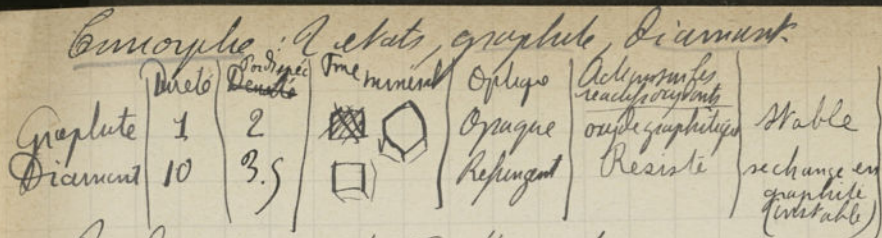 Dimorphe : 2 etats, graphite, Diamant
Dureté Poids spéc Fme mineral Optiqe Action sur les
réactifs oxydants
Graphite 1 2 Opaque oxyde graphitique stable
Diamant 10 3.5 Refringent Resiste se change en
graphite
(instable)